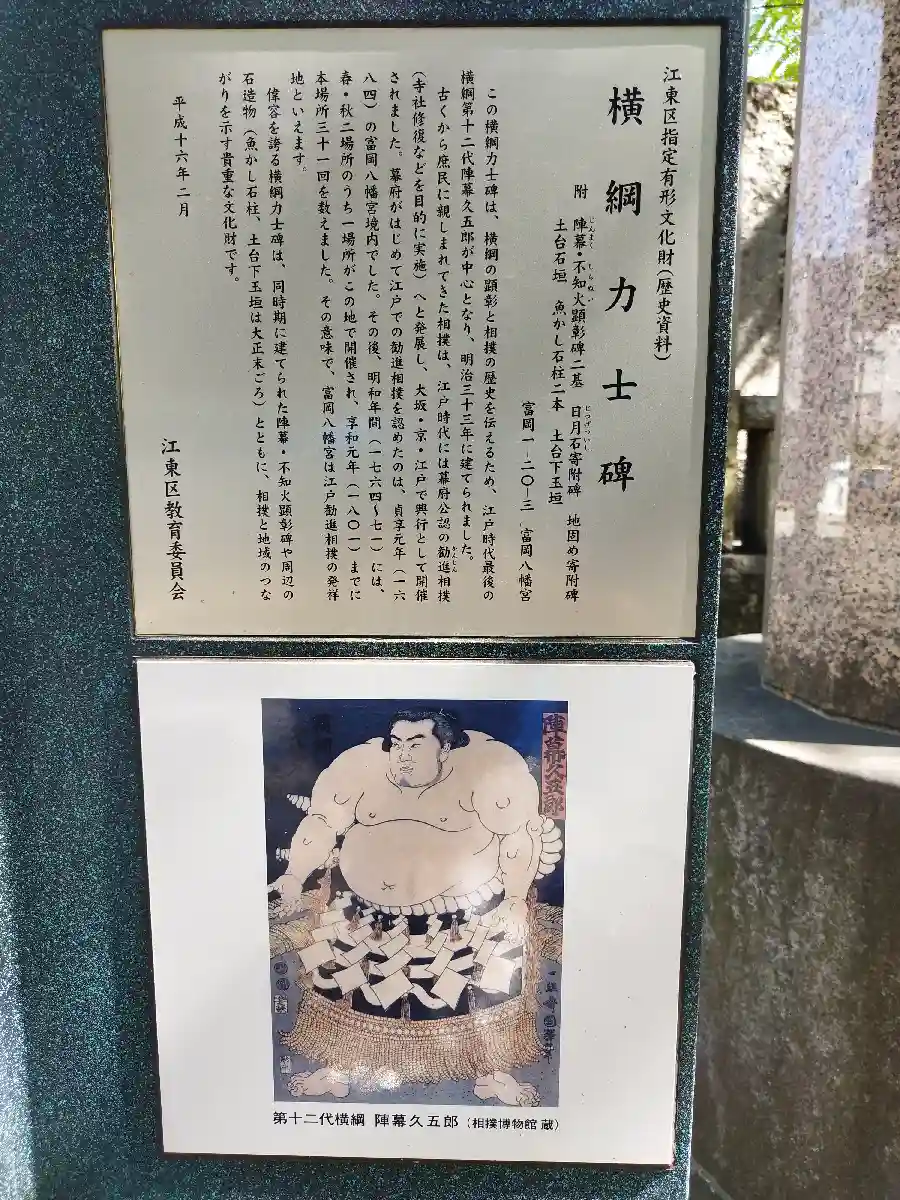 江東区指定有形文化財(歴史資料)
横綱力士碑
附 陣幕・不知火顕彰碑二基 日月石寄附碑 地固め寄附碑
土台石垣 魚がし石柱二本 土台下玉垣
富岡一―二〇―三 富岡八幡宮
この横綱力士碑は、横綱の顕彰と相撲の歴史を伝えるため、江戸時代最後の
横綱第十二代陣幕久五郎が中心となり、明治三十三年に建てられました。
古くから庶民に親しまれてきた相撲は、江戸時代には幕府公認の勧進相撲
(寺社修復などを目的に実施)へと発展し、大坂・京・江戸で興行として開催
されました。幕府がはじめて江戸での勧進相撲を認めたのは、貞享元年(一六
八四)の富岡八幡宮境内でした。その後、明和年間(一七六四~七一)には、
春・秋二場所のうち一場所がこの地で開催され、享和元年(一八〇一)までに
本場所三十一回を数えました。その意味で、富岡八幡宮は江戸勧進相撲の発祥
地といえます。
偉容を誇る横綱力士碑は、同時期に建てられた陣幕・不知火顕彰碑や周辺の
石造物(魚がし石柱、土台下玉垣は大正末ごろ)とともに、相撲と地域のつな
がりを示す貴重な文化財です。
平成十六年二月
江東区教育委員会
陣幕久五郎
第十二代横綱 陣幕久五郎(相撲博物館 蔵)